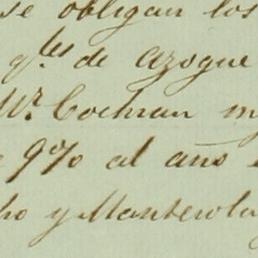 se obligan los
q.les de azogue
Mr. Cochran m
9% al año
ho y Manterola